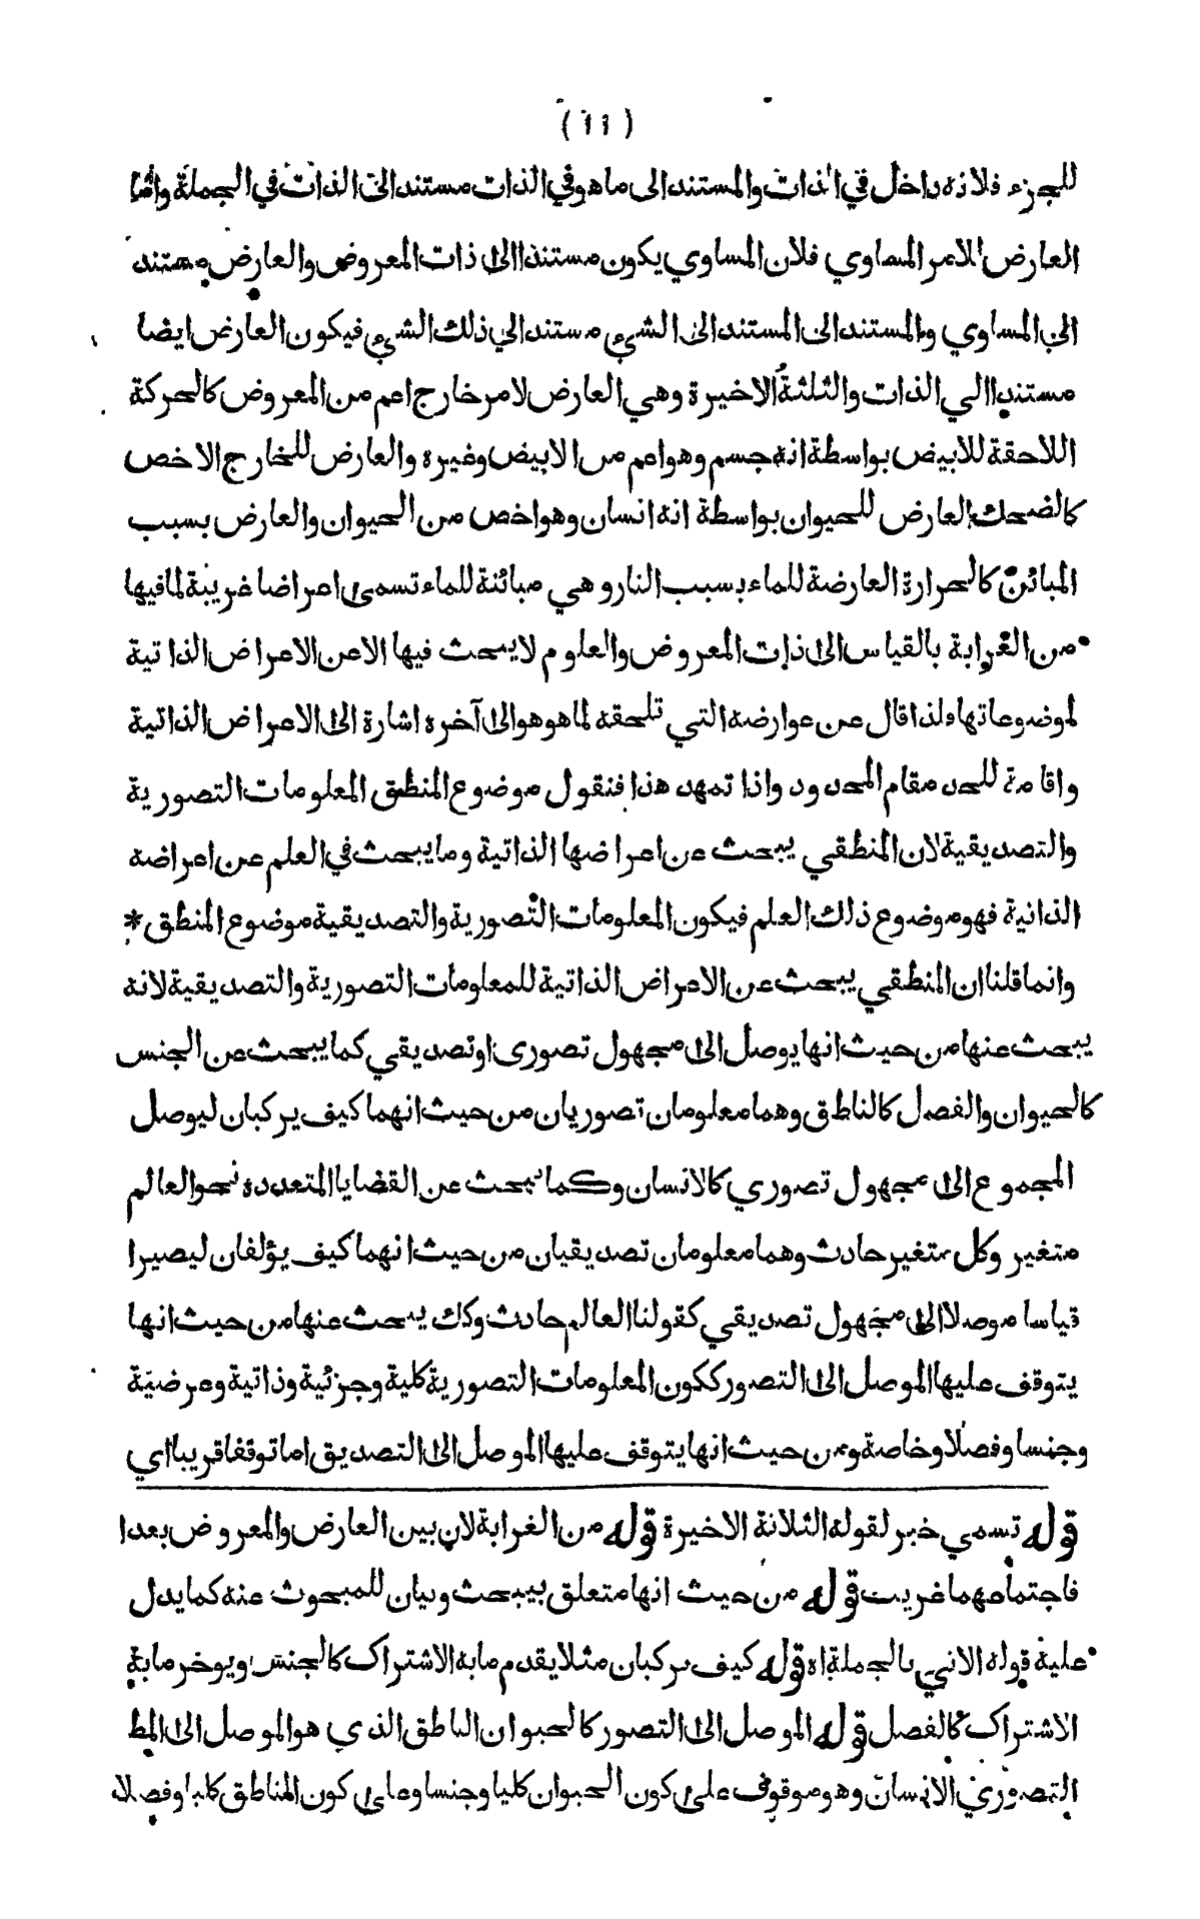 (١١)
للجزء فلانه داخل في الذات والمستند الى ما هو في الذات مستند الى الذات في الجملة واما
العارض للامر المساوي فلان المساوي يكون مستندا الى ذات المعروض والعارض مستند
الى المساوي والمستند الى المستند الى الشيء مستند الى ذلك الشيء فيكون العارض ايضا
مستندا الي الذات والثلثة الاخيرة وهي العارض لامر خارج اعم من المعروض كالحركة
اللاحقة للابيض بواسطة انه جسم وهو اعم من الابيض وغيره والعارض للخارج الاخص
كالضحك العارض للحيوان بواسطة انه انسان وهو اخص من الحيوان والعارض بسبب
المبائن كالحرارة العارضة للماء بسبب النار وهي مبائنة للماء تسمى اعراضا غريبة لما فيها
من الغرابة بالقياس الى ذات المعروض والعلوم لا يبحث فيها الا عن الاعراض الذاتية
لموضوعاتها ولذا قال عن عوارضه التي تلحقه لما هو هو الى آخره اشارة الى الاعراض الذاتية
واقامة للحد مقام المحدود واذا تمهد هذا فنقول موضوع المنطق المعلومات التصورية
والتصديقية لان المنطقي يبحث عن اعراضها الذاتية وما يبحث في العلم عن اعراضه
الذاتية فهو موضوع ذلك العلم فيكون المعلومات التصورية والتصديقية موضوع المنطق *
وانما قلنا ان المنطقي يبحث عن الاعراض الذاتية للمعلومات التصورية والتصديقية لانه
يبحث عنها من حيث انها يوصل الى مجهول تصورى او تصديقي كما يبحث عن الجنس
كالحيوان والفصل كالناطق وهما معلومان تصوريان من حيث انهما كيف يركبان ليوصل
المجموع الى مجهول تصوري كالانسان وكما يبحث عن القضايا المتعدده نحو العالم
متغير وكل متغير حادث وهما معلومان تصديقيان من حيث انهما كيف يؤلفان ليصيرا
قياسا موصلا الى مجهول تصديقي كقولنا العالم حادث وكك يبحث عنها من حيث انها
يتوقف عليها الموصل الى التصور ككون المعلومات التصورية كلية وجزئية وذاتية وعرضية
وجنسا وفصلا وخاصة ومن حيث انها يتوقف عليها الموصل الى التصديق اما توقفا قريبا اي
قوله تسمي خبر لقوله الثلاثة الاخيرة قوله من الغرابة لان بين العارض والمعروض بعدا
فاجتماعهما غريب قوله من حيث انها متعلق بيبحث وبيان للمبحوث عنه كما يدل
عليه قوله الاتي بالجملة اه قوله كيف يركبان مثلا يقدم ما به الاشتراك كالجنس ويوخر ما به
الاشتراك كالفصل قوله الموصل الى التصور كالحيوان الناطق الذي هو الموصل الى المط
التصوري الانسان وهو موقوف على كون الحيوان كليا وجنسا وعلى كون الناطق كليا وفصلا